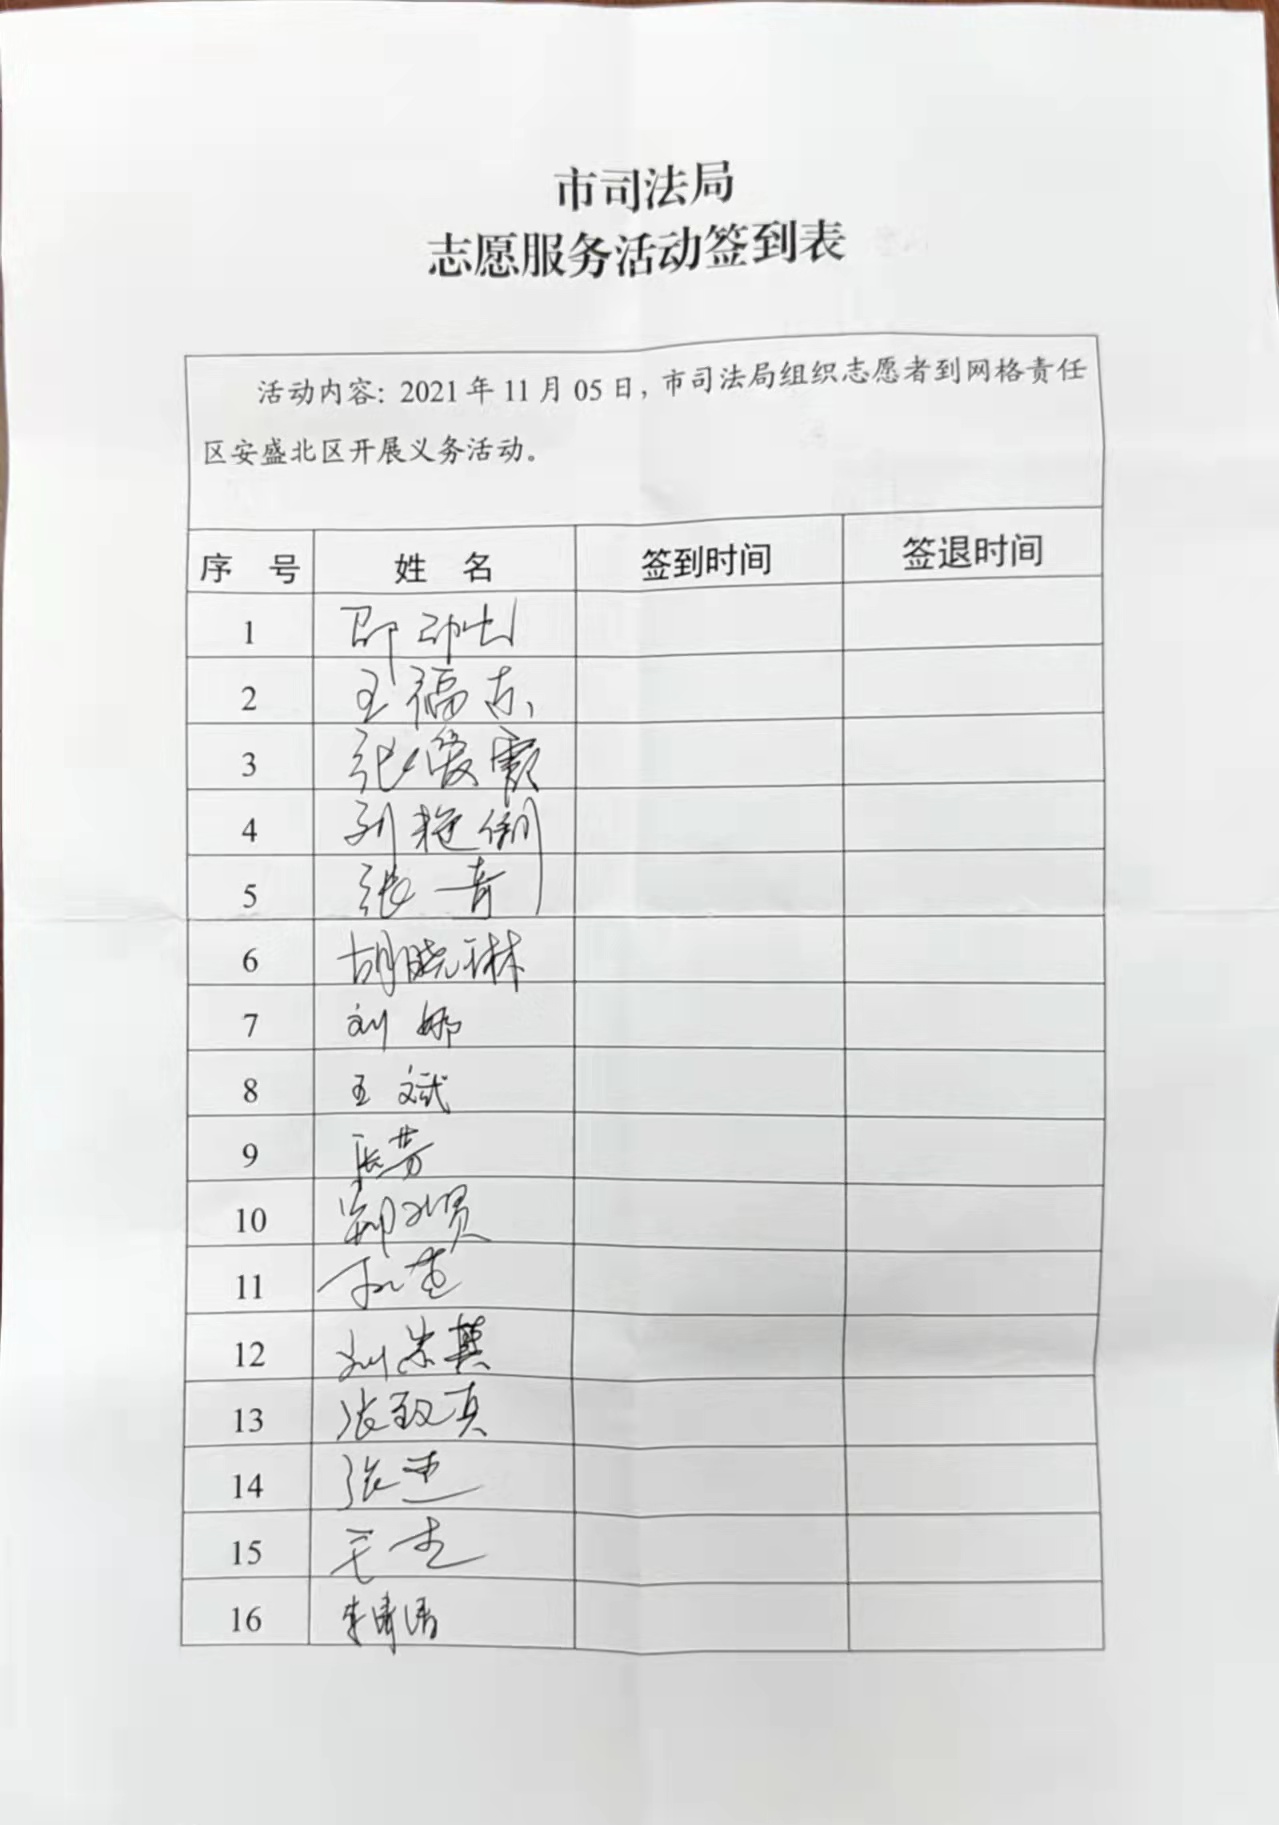 市司法局
志愿服务活动签到表
活动内容：2021年11月05日，市司法局组织志愿者到网格责任
区安盛北区开展义务活动。
序 号 姓 名 签到时间 签退时间
1 邵
2 王福东
3 张爱霞
4 刘艳俐
5 张青
6 胡晓琳
7 刘娜
8 王斌
9 张芳
10 郑
11
12 刘
13 张致真
14 张
15 王
16 李